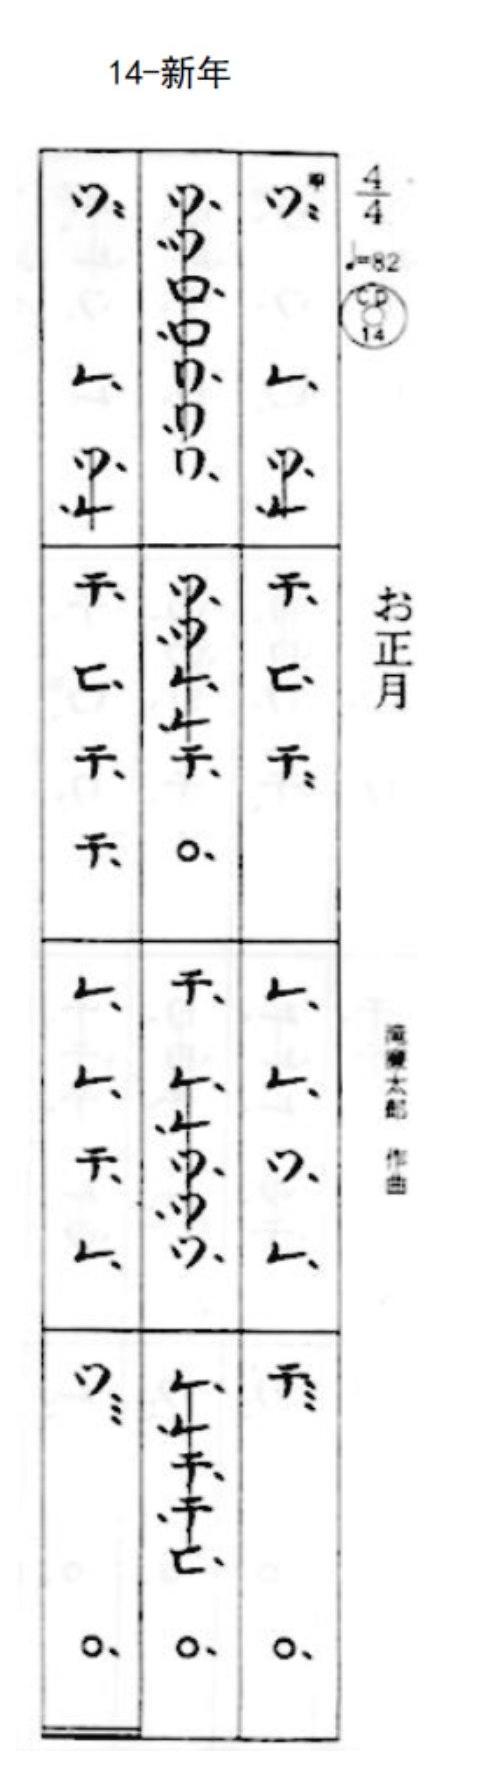 14-新年
4/4
♩=82
CD
14
お正月
滝廉太郎 作曲
甲
ツ、、 レ、 ツ、 、レ チ、 ヒ、 チ、、 レ、 レ、 ツ、 レ、 チ、、、 ○、
ツ、 、ツ ロ、 、ロ リ、 、リ リ、 ツ、 、ツ レ、 、レ チ、 ○、 チ、 レ、 、レ ツ、 、ツ ツ、 レ、 、レ チ、 、チ ヒ、 ○、
ツ、、 レ、 ツ、 、レ チ、 ヒ、 チ、 チ、 レ、 レ、 チ、 レ、 ツ、、、 ○、